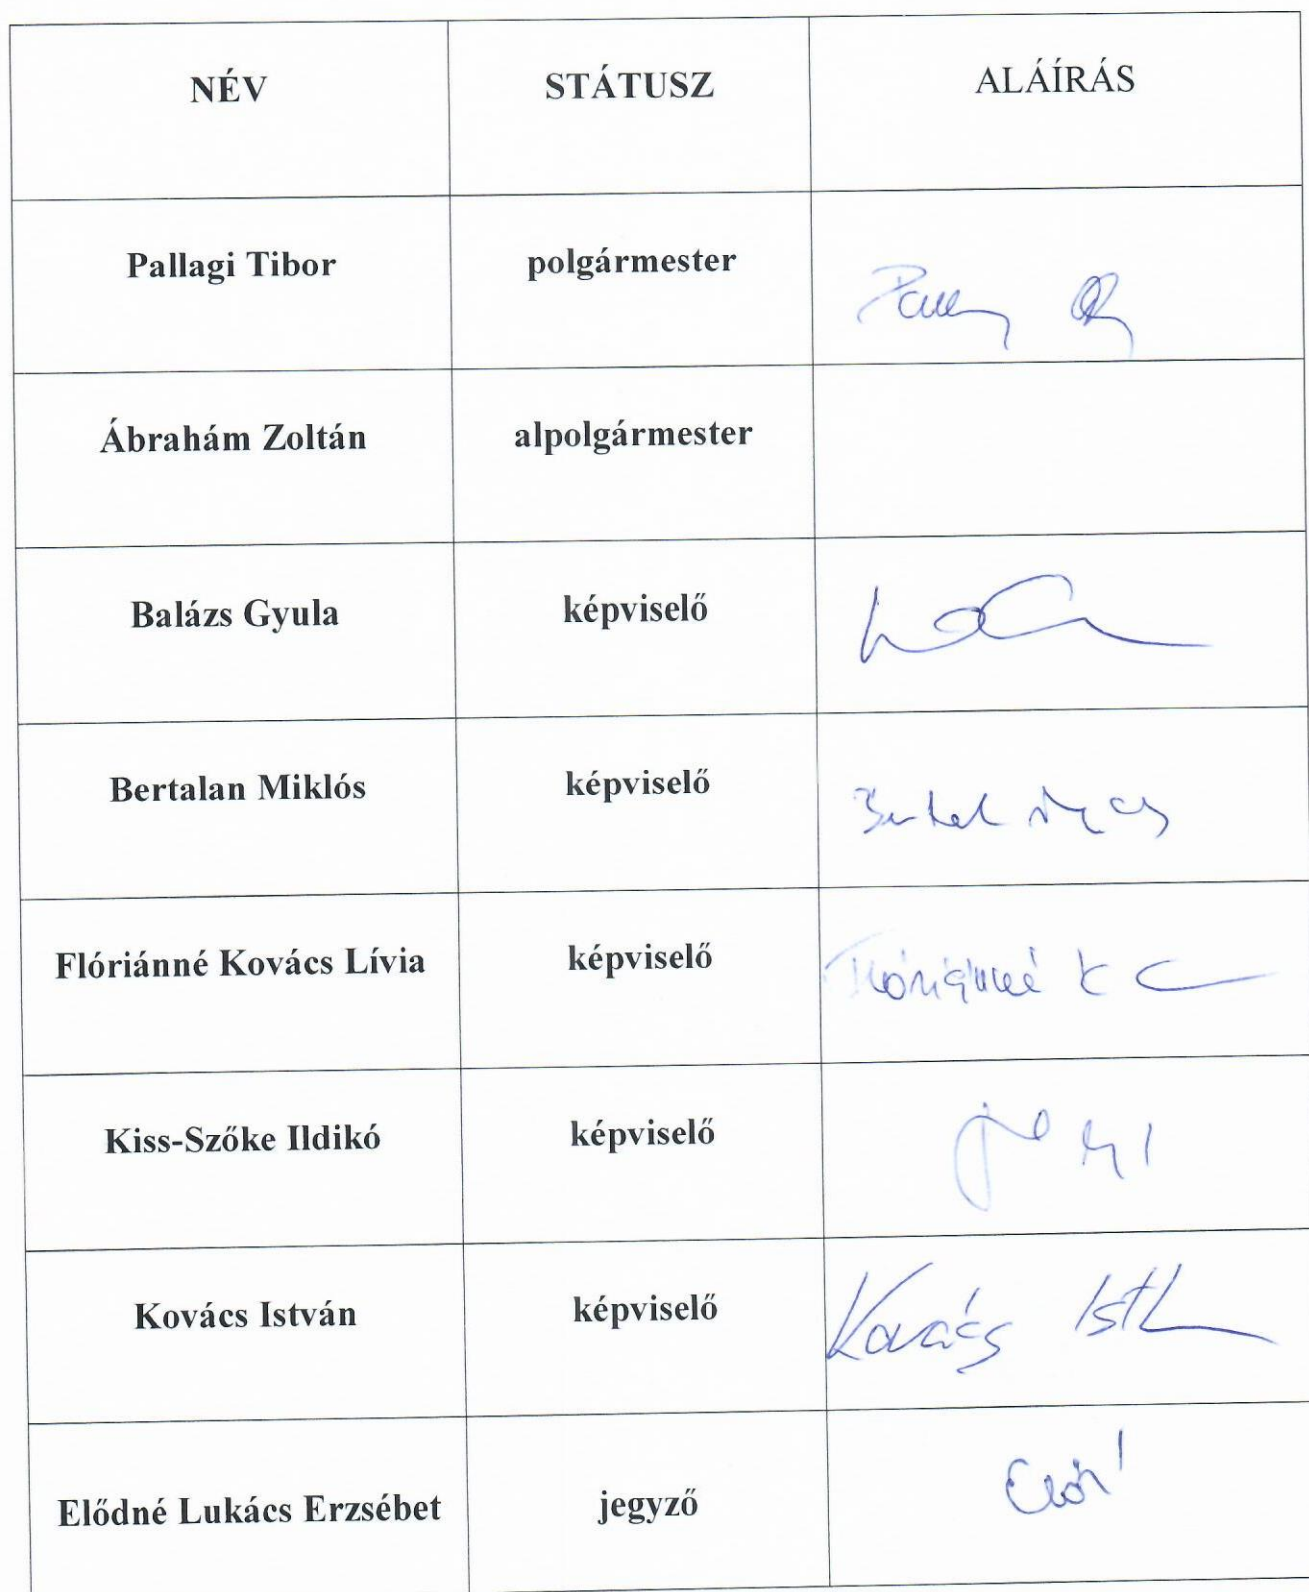 NÉV STÁTUSZ ALÁÍRÁS
Pallagi Tibor polgármester
Ábrahám Zoltán alpolgármester
Balázs Gyula képviselő
Bertalan Miklós képviselő
Flóriánné Kovács Lívia képviselő Flóriánné K
Kiss-Szőke Ildikó képviselő
Kovács István képviselő Kovács
Elődné Lukács Erzsébet jegyző